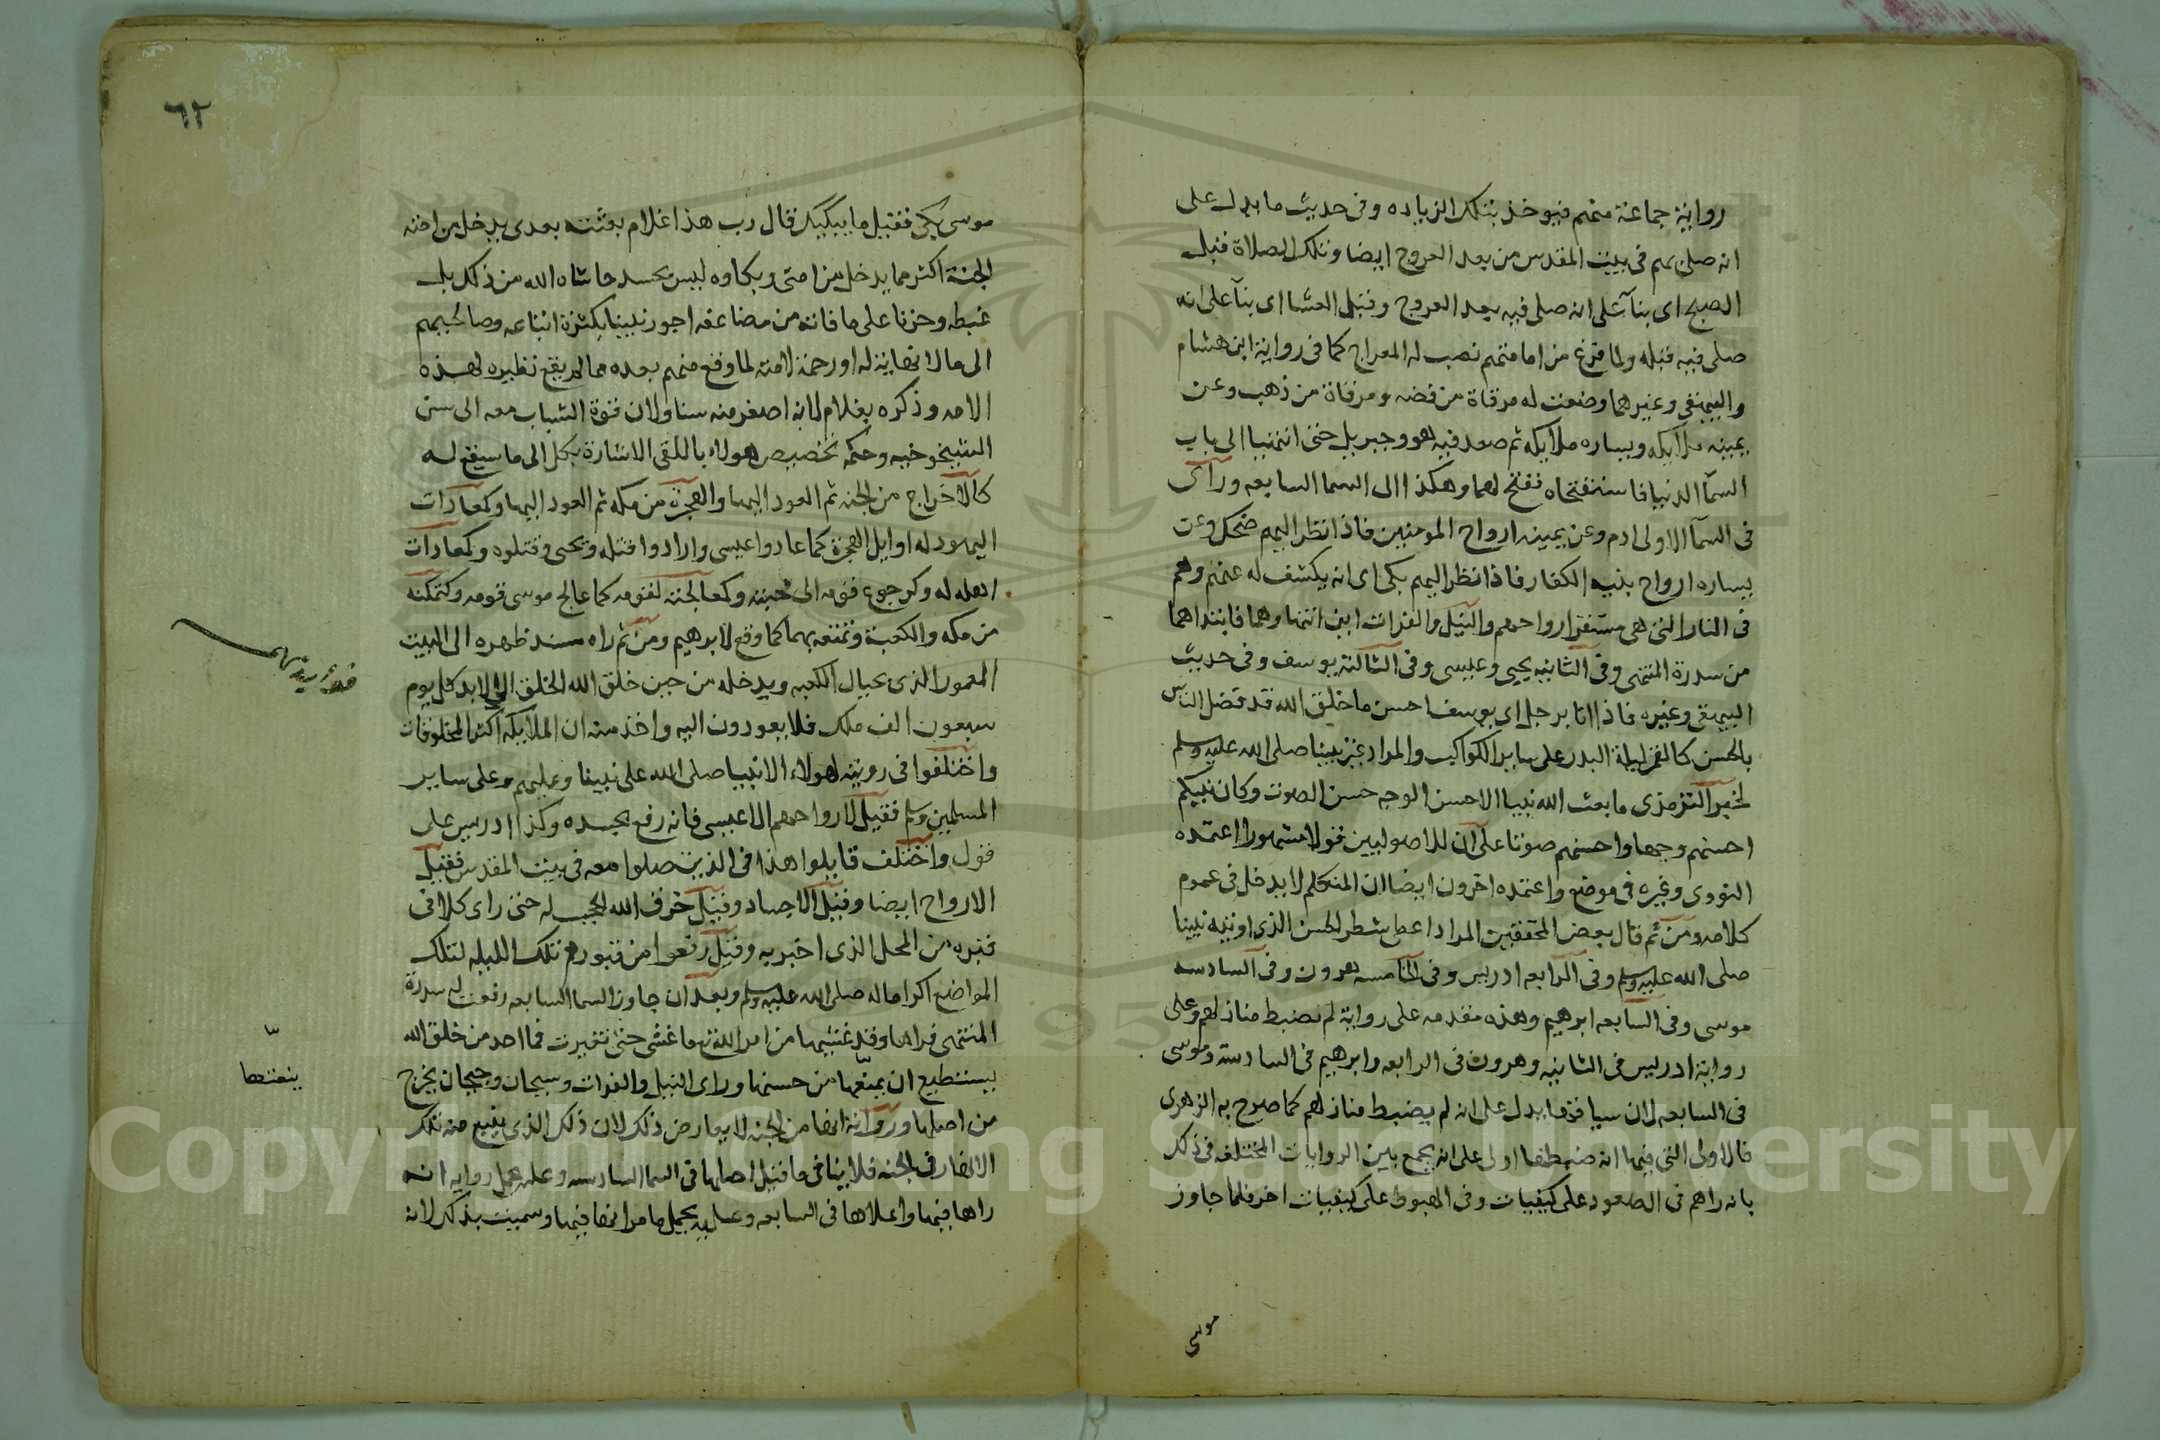 رواية جماعة منهم فيوخذ بتلك الزياده وفى حديث ما يدل على
انه صلى بهم فى بيت المقدس من بعد العروج ايضا وتلك الصلاة قبل
الصبح اى بنآ على انه صلى فيه بعد العروج وقبل العشا اى بنآ على انه
صلى فيه قبله ولما فرغ من امامتهم نصب له المعراج كما فى رواية ابن هشام
والبيهقى وغيرهما وضعت له مرقاة من فضه ومرقاة من ذهب وعن
يمينه ملايكه ويساره ملايكه ثم صعد فيه هو وجبريل حتى انتهيا الى باب
السمآ الدنيا فاستفتحاه ففتح لهما وهكذا الى السما السابعه ورآى
فى السمآ الاولى ادم وعن يمينه ارواح المومنين فاذا نظر اليهم ضحك وعن
يساره ارواح بنيه الكفار فاذا نظر اليهم بكى اى انه يكشف له عنهم وهم
فى النار التى هى مستقر ارواحهم والنيل والفرات اين انتهاوهما فابتداهما
من سدرة المنتهى وفى الثانيه يحيى وعيسى وفى الثالثة يوسف وفى حديث
البيهقى وغيره فاذا انا برجل اى يوسف احسن ما خلق الله قد فضل الناس
بالحسن كالقمر ليلة البدر على ساير الكواكب والمراد غير نبينا صلى الله عليه وسلم
لخبر الترمذى ما بعث الله نبيا الا حسن الوجه حسن الصوت وكان نبيكم
احسنهم وجها واحسنهم صوتا على ان للاصوليين قولا مشهورا اعتمده
النووى وغيره فى موضع واعتمده اخرون ايضا ان المتكلم لا يدخل فى عموم
كلامه ومن ثم قال بعض المحققين المراد اعطى شطر الحسن الذى اوتيه نبينا
صلى الله عليه وسلم وفى الرابعه ادريس وفى الخامسه هرون وفى السادسه
موسى وفى السابعه ابرهيم وهذه مقدمه على رواية لم تضبط منازلهم وعلى
رواية ادريس فى الثانيه وهرون فى الرابعه وابرهيم فى السادسة وموسى
فى السابعه لان سياقهما يدل على انه لم يضبط منازلهم كما صرح به الزهرى
فالاولى التى فيها انه ضبطها اولى على انه يجمع بين الروايات المختلفه فى ذلك
بانه راهم فى الصعود على كيفيات وفى الهبوط على كيفيات اخر فلما جاوز
موسى
٦٢
موسى بكى فقيل ما يبكيك قال رب هذا غلام بعثته بعدى يدخل من امته
الجنة اكثر مما يدخل من امتى وبكاوه ليس بحسد حاشاه الله من ذلك بل
غبطه وحزنا على ما فاته من مضاعفه اجور نبينا بكثرة اتباعه وصالحيهم
الى ما لا نهاية له او رحمة لامته لما وقع منهم بعده مما لم يقع نظيره لهذه
الامه وذكره بغلام لانه اصغر منه سنا ولان قوة الشباب معه الى سن
الشيخوخيه وحكمة تخصيص هولاء باللقى الاشارة بكل الى ما سيقع له
كالاخراج من الجنه ثم العود اليها والهجرة من مكه ثم العود اليها وكمعادات
اليهود له اوايل الهجرة كما عادوا عيسى وارادوا قتله ويحيى وقتلوه وكمعادات
اهله له وكرجوع قومه الى محبته وكمعالجته لقومه كما عالج موسى قومه وكتمكنه
من مكه والكعبة وتمتعه بهما كما وقع لابرهيم ومن ثم راه مسند ظهره الى البيت
المعمور الذى بحيال الكعبه ويدخله من حين خلق الله الخلق الى الابد كل يوم
سبعون الف ملك فلا يعودون اليه واخذ منه ان الملايكه اكثر المخلوقات
واختلفوا فى رويته لهولاء الانبيا صلى الله على نبينا وعليهم وعلى ساير
المسلمين وسلم فقيل لارواحهم الا عيسى فانه رفع بجسده وكذا ادريس على
قول واختلف قايلوا هذا فى الذين صلوا معه فى بيت المقدس فقيل
الارواح ايضا وقيل الاجساد وقيل خرق الله الحجب له حتى راى كلا فى
قبره من المحل الذى اخبر به وقيل رفعوا من قبورهم تلك الليله لتلك
المواضع اكراما له صلى الله عليه وسلم وبعد ان جاوز السما السابعه رفعت له سدرة
المنتهى فراها وقد غشيها من امر الله تع ما غشى حتى تغيرت فما احد من خلق الله
يستطيع ان يمتعها من حسنها وراى النيل والفرات وسيحان وجيحان يخرج
ينعتها
من اصلها ورواية انها من الجنه لا يعارض ذلك لان ذلك الذى ينبع منه تلك
الانهار فى الجنه فلا ينافى ما قيل اصلها فى السما السادسه وعليه يحمل روايه انه
راها فيها واعلاها فى السابعه وعليه يحمل ما مر انها فيها وسميت بذلك لانه